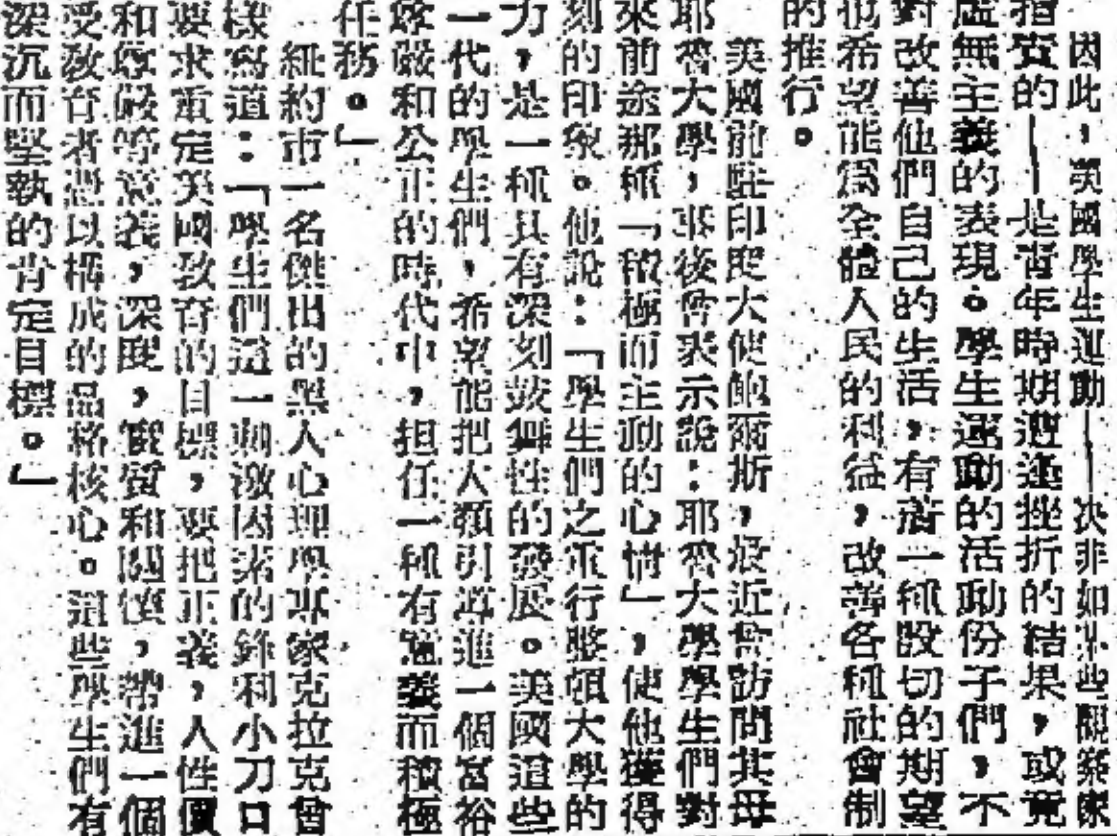 因此，美國學生運動——決非如某些觀察家
指責的——是青年時期遭逢挫折的結果，或竟
虛無主義的表現。學生運動的活動份子們，不
對改善他們自己的生活，有着一種殷切的期望
也希望能爲全體人民的利益，改善各種社會制
的推行。
美國前駐印度大使鮑爾斯，最近曾訪問其母
耶魯大學，事後曾表示說：耶魯大學學生們對
來前途那種「積極而主動的心情」，使他獲得
刻的印象。他說：「學生們之重行整頓大學的
力，是一種具有深刻鼓舞性的發展。美國這些
一代的學生們，希望能把人類引導進一個富裕
尊嚴和公正的時代中，担任一種有意義而積極
任務。」
紐約市一名傑出的黑人心理學專家克拉克曾
樣寫道：「學生們這一刺激因素的鋒利小刀口
要求重定美國敎育的目標，要把正義，人性價
和尊嚴等意義，深度，實質和關懷，帶進一個
受敎育者憑以構成的品格核心。這些學生們有
深沉而堅執的肯定目標。」